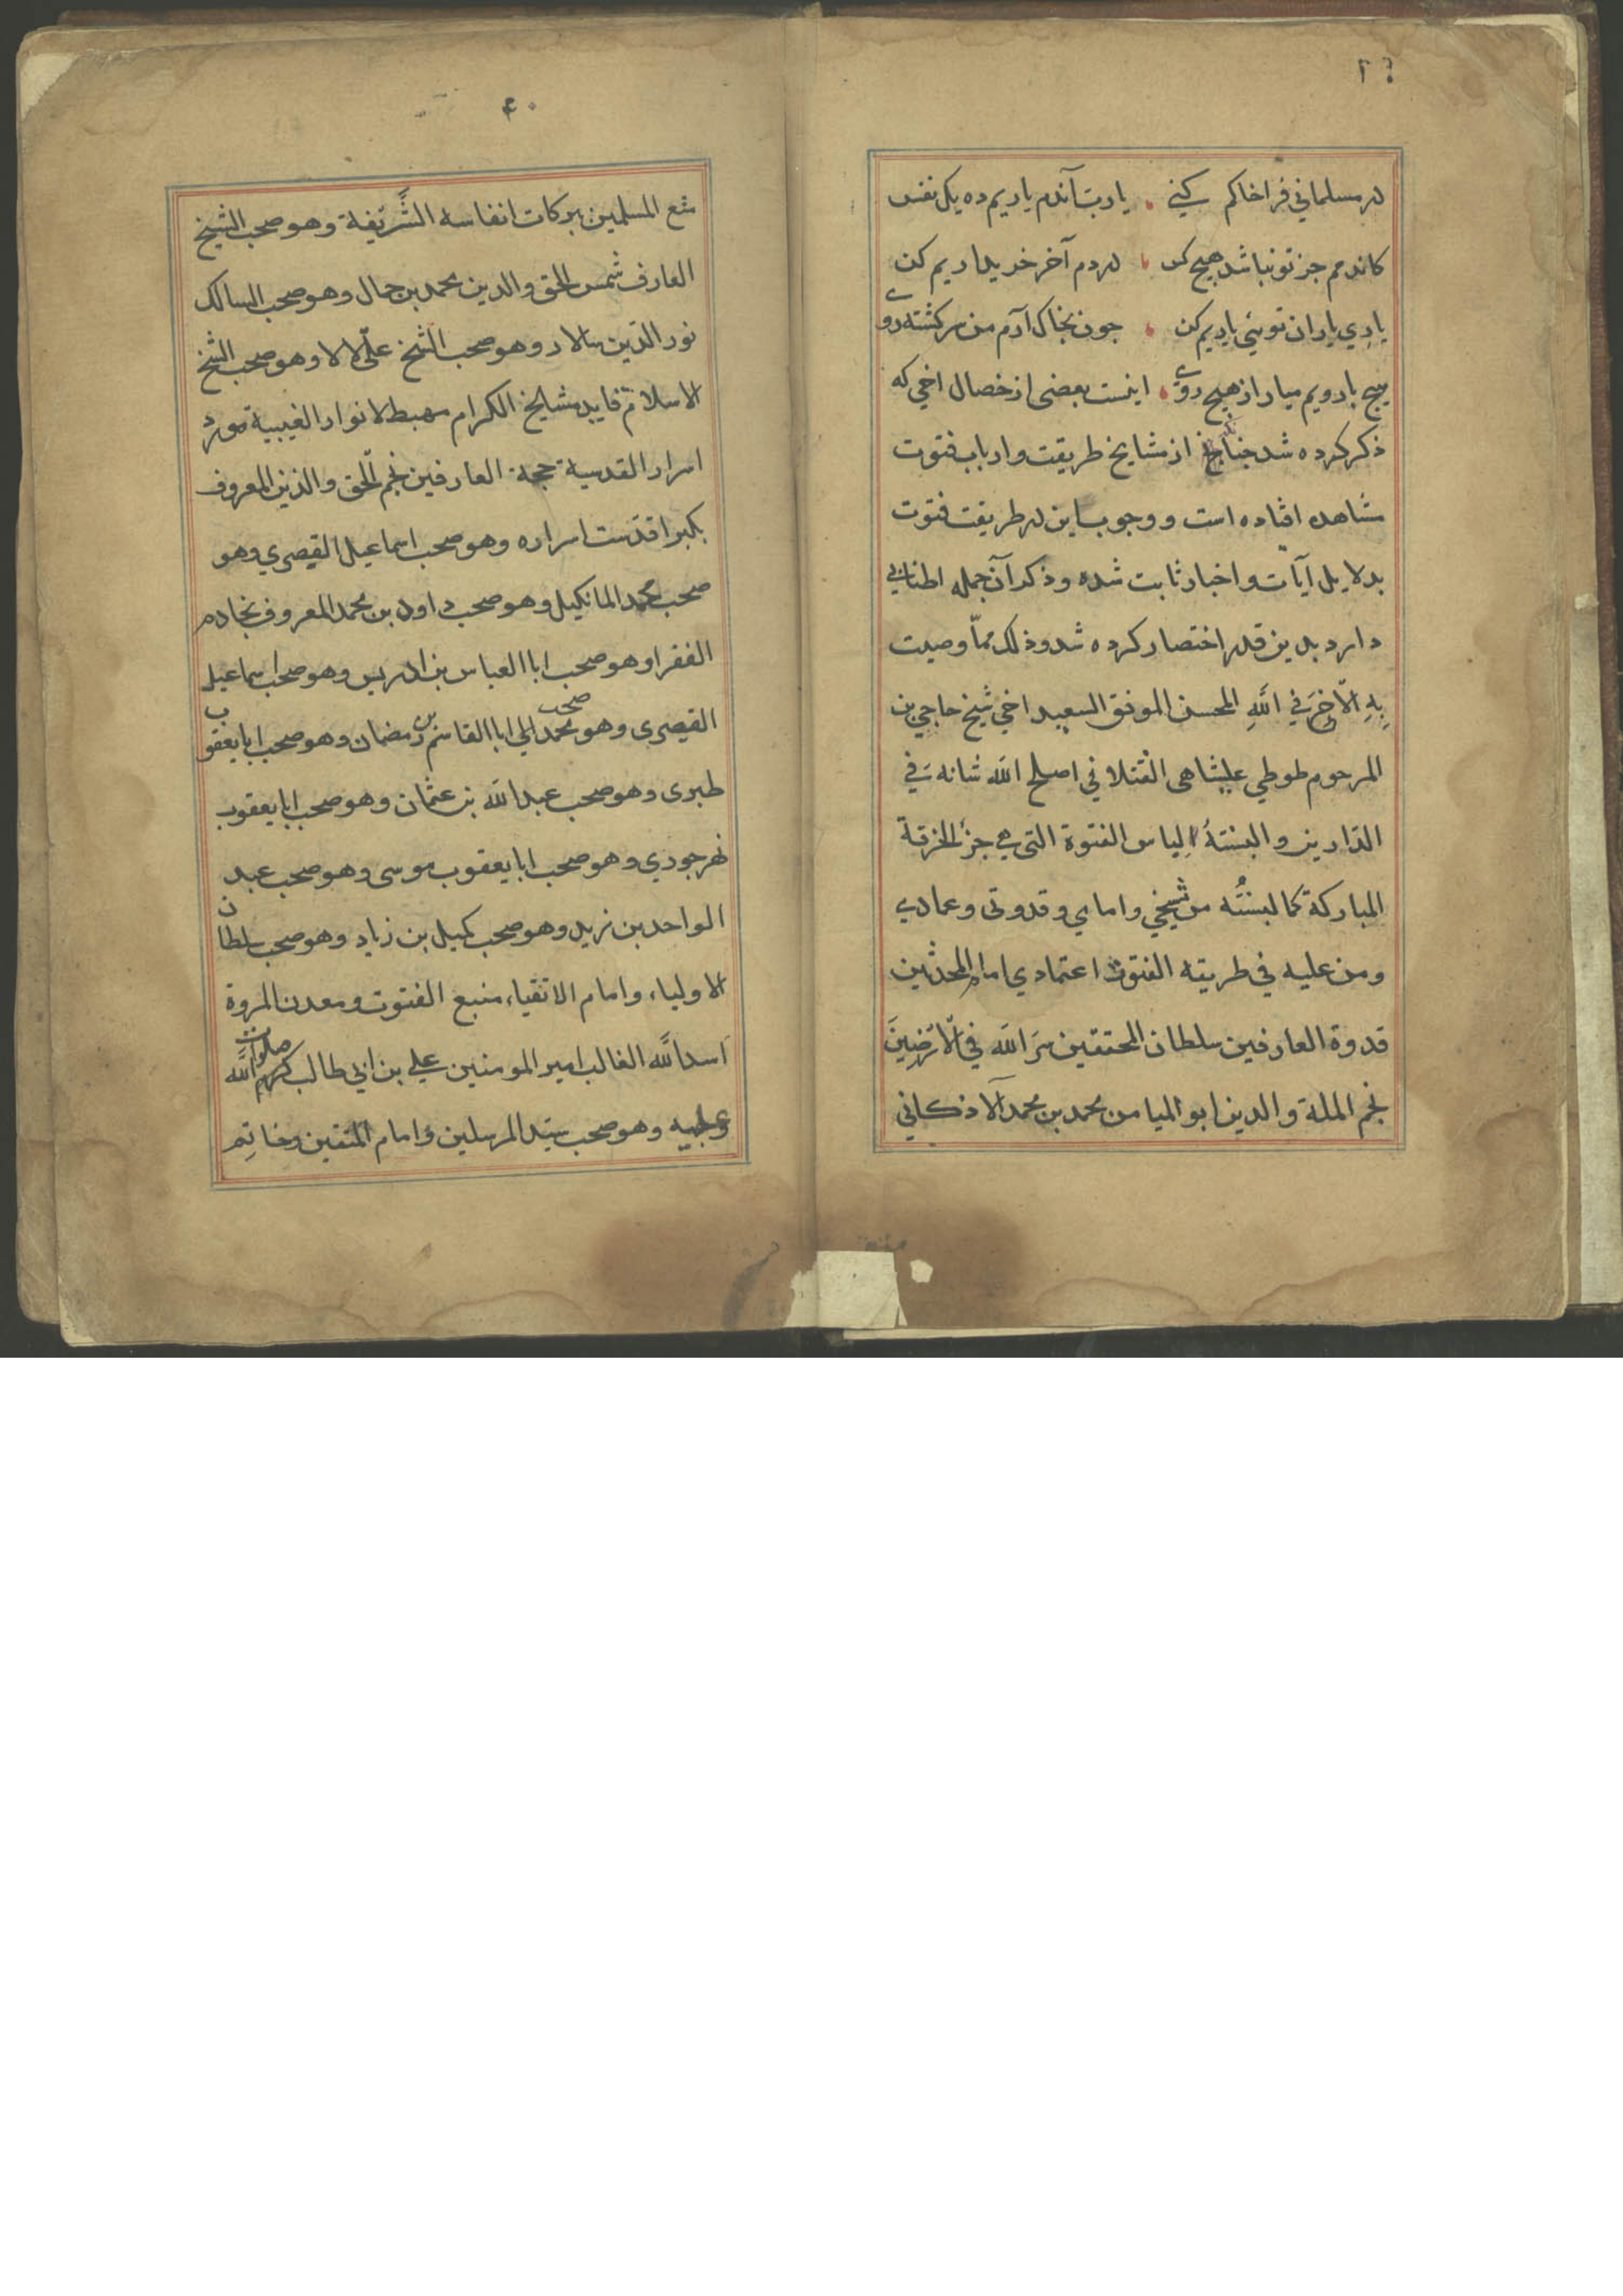 در مسلماني فراخاكم كني ، يارب آندم ياريم ده يك نفس
كاندمم جز تو نباشد هيچ كس ، در دم آخر خريداريم كن
ياري ياران توئي ياريم كن ، چون بخاك آرم من سركشته روي
هيچ با رويم ميار از هيچ روي ، اينست بعضى از خصال اخي كه
ذكر كرده شد چنانچ از مشايخ طريقت و ارباب فتوت
مشاهده افتاده است و وجوب اين در طريقت فتوت
بدلايل آيات و اخبار ثابت شده و ذكر آن جمله اطنابي
دارد بدين قدر اختصار كرده شد وذلك ممّا وصيت
بِهِ الآخرَ في اللهِ المحسن الموفق السعيد اخي شيخ حاجي بن
المرحوم طوطي عليشاهى الختلاني اصلح الله شانه في
الدّارين والبستهُ لباس الفتوة التي هي جزؤ الخرقة
المباركة كما لبستُه من شيخي وامامي وقدوتى وعمادي
ومن عليه في طريقه الفتوت اعتمادي امام المحدثين
قدوة العارفين سلطان المحققين سرَ الله في الارضينَ
نجم الملة والدين ابو الميامن محمد بن محمد الاذكاني
۴۰
متع المسلمين ببركات انفاسه الشَّريفة وهو صحب الشيخ
العارف شمس الحق والدين محمد بن جمال وهو صحب السالك
نور الدّين سالار وهو صحب الشيخ علي لالا وهو صحب الشيخ
الاسلام قايد مشايخ الكرام مهبط الانوار الغيبية مورد
اسرار القدسية حجة العارفين نجم الحق والدين المعروف
بكبرا قدّست اسراره وهو صحب اسماعيل القيصري وهو
صحب محمد المانكيل وهو صحب داود بن محمد المعروف بخادم
الفقرا وهو صحب ابا العباس بن ادريس وهو صحب اسماعيل
القيصرى وهو صحب محمد الي ابا القاسم بن رمضان وهو صحب ابا يعقوب
طبرى وهو صحب عبد الله بن عثمان وهو صحب ابا يعقوب
نهرجودي وهو صحب ابا يعقوب موسى وهو صحب عبد
الواحد بن زيد وهو صحب كميل بن زياد وهو صحب سلطان
الاولياء وامام الاتقياء منبع الفتوت ومعدن المروة
اسد الله الغالب امير المومنين علي بن ابي طالب صلوات الله
عليه وهو صحب سيّد المرسلين وامام المتقين وخاتِم